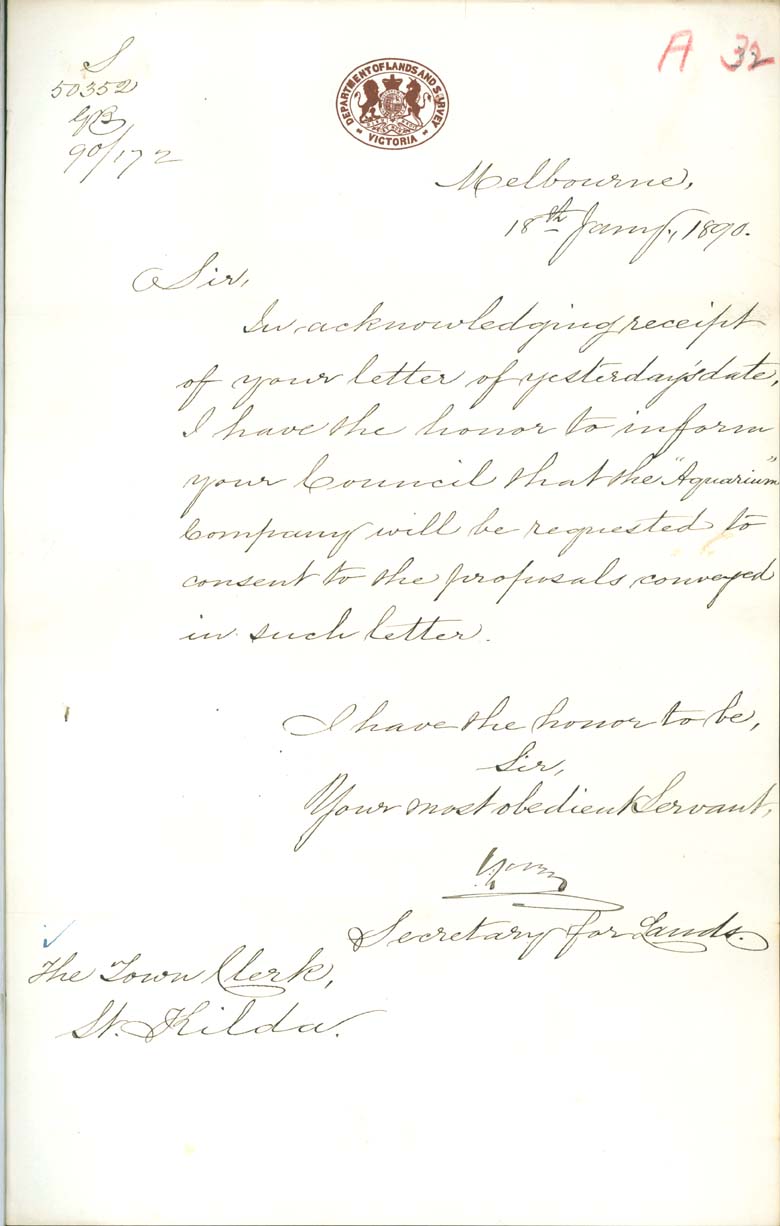 S
50352
90/172
A 32
DEPARTMENT OF LANDS AND SURVEY
VICTORIA
Melbourne,
18th Jany., 1890.
Sir,
In acknowledging receipt
of your letter of yesterday's date,
I have the honor to inform
your Council that the "Aquarium"
Company will be requested to
consent to the proposals conveyed
in such letter.
I have the honor to be,
Sir,
Your most obedient Servant,
Secretary for Lands.
The Town Clerk,
St. Kilda.